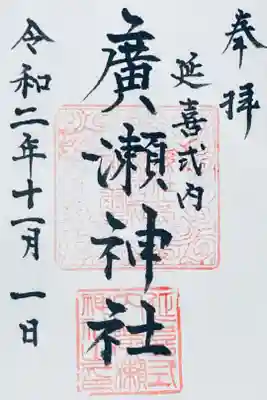 奉拝
延喜式内
廣瀬神社
令和二年十一月一日